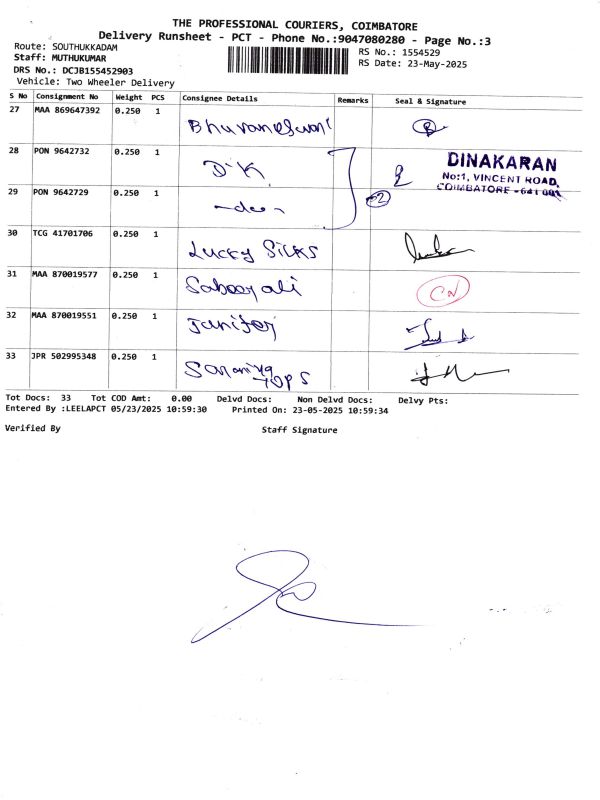 THE PROFESSIONAL COURIERS, COIMBATORE
Delivery Runsheet - PCT - Phone No.:9047080280 - Page No.:3
Route: SOUTHUKKADAM
RS No.: 1554529
Staff: MUTHUKUMAR
RS Date: 23-May-2025
DRS No.: DCJB155452903
Vehicle: Two Wheeler Delivery
S No Consignment No Weight PCS Consignee Details Remarks Seal & Signature
27 MAA 869647392 0.250 1 Bhuvaneswari
28 PON 9642732 0.250 1 D.K.
DINAKARAN
No:1, VINCENT ROAD,
COIMBATORE - 641 001
29 PON 9642729 0.250 1 -do- 2
30 TCG 41701706 0.250 1 Lucky Silks
31 MAA 870019577 0.250 1 Sabeer ali CN
32 MAA 870019551 0.250 1 Janifer
33 JPR 502995348 0.250 1 Saranya TOPS
Tot Docs: 33 Tot COD Amt: 0.00 Delvd Docs: Non Delvd Docs: Delvy Pts:
Entered By :LEELAPCT 05/23/2025 10:59:30 Printed On: 23-05-2025 10:59:34
Verified By Staff Signature